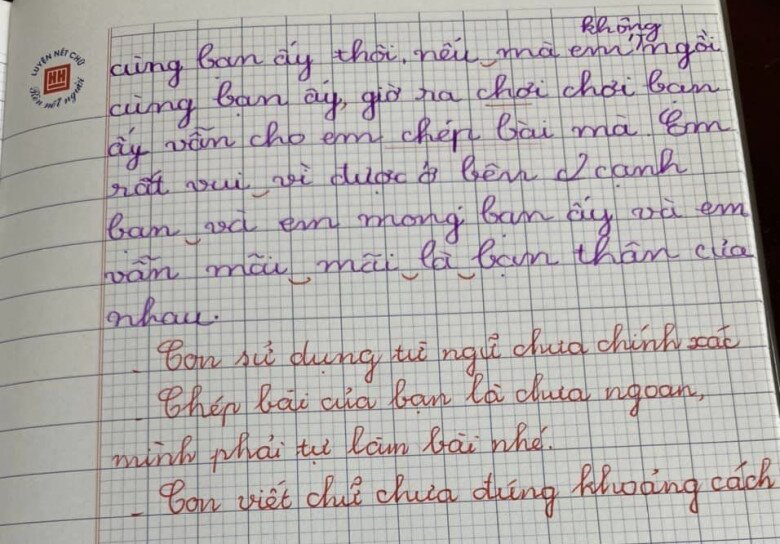 LUYỆN NÉT CHỮ
HH
Rèn nết người
không
cùng bạn ấy thôi, nếu mà em ngồi
cùng bạn ấy, giờ ra chơi chơi bạn
ấy vẫn cho em chép bài mà. Em
rất vui vì được ở bên cạnh
bạn và em mong bạn ấy và em
vẫn mãi mãi là bạn thân của
nhau.
- Con sử dụng từ ngữ chưa chính xác
- Chép bài của bạn là chưa ngoan,
mình phải tự làm bài nhé.
- Con viết chữ chưa đúng khoảng cách